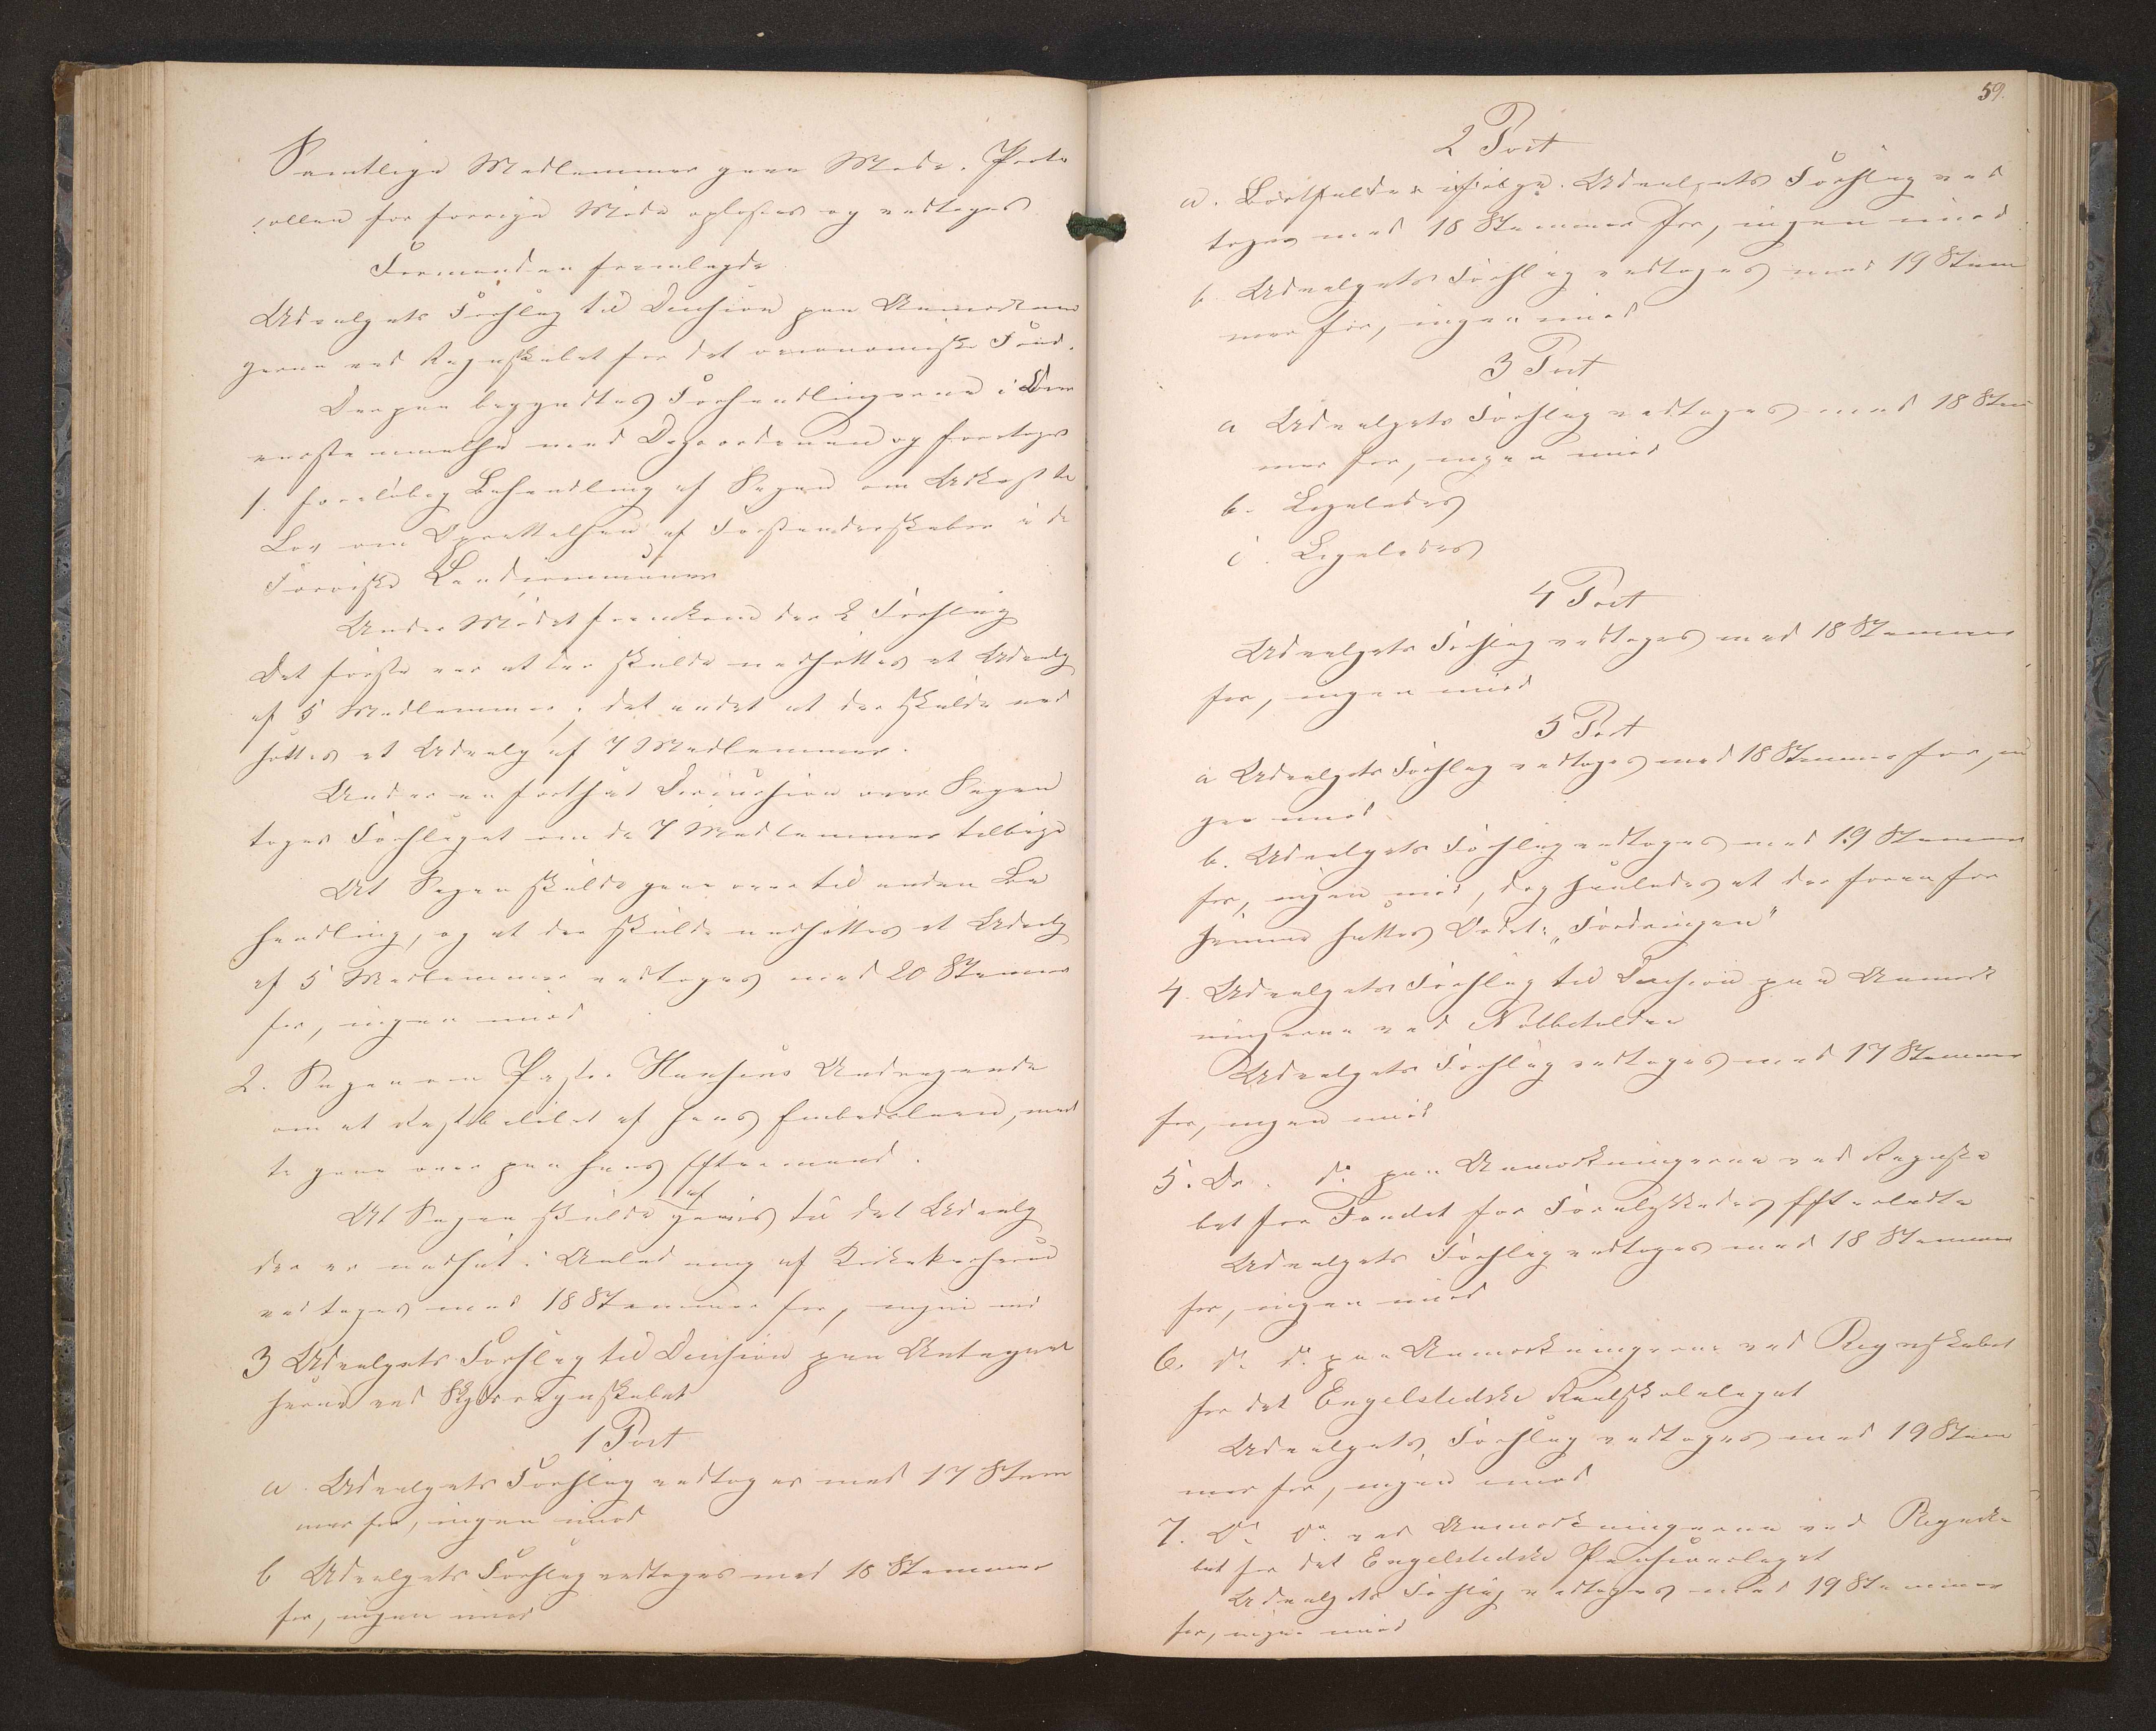 Samtlige Medlemmer gave Møde. Proto
collen for forrige Møde oplæstes og vedtoges
Formanden fremlagde
Udvalgets Forslag til Decision paa Anmærknin
gerne ved Regnskabet for det oeconomiske Fond.
Derpaa begyndtes Forhandlingerne i Over
eensstemmelse med Dagsordenen og foretoges
1. foreløbig Behandling af Sagen om Udkast til
Lov om Oprettelsen af Forstanderskaber i de
Færøiske Landcommuner
Under Mødet fremkom der 2 Forslag
Det første var at der skulde nedsættes et Udvalg
af 5 Medlemmer, det andet at der skulde ned
sættes et Udvalg af 7 Medlemmer.
Under en fortsat Discussion over Sagen
toges Forslaget om de 7 Medlemmer tilbage
At Sagen skulde gaae over til anden Be
handling, og at der skulde nedsættes et Udvalg
af 5 Medlemmer vedtoges med 20 Stemmer
for, ingen imod
2. Sagen om Pastor Hansens Andragende
om at Restbeløbet af hans Embedslaan, maat
te gaae over paa hans Eftermand.
At Sagen skulde gives til det Udvalg
der er nedsat i Anledning af
vedtoges med 18 Stemmer for, ingen imod
3 Udvalgets Forslag til Decision paa Antegnel
serne ved Skydsregnskabet
1 Post
a. Udvalgets Forslag vedtoges med 17 Stem
mer for, ingen imod
b Udvalgets Forslag vedtoges med 18 Stemmer
for, ingen imod
59.
2 Post
a. Bortfalder ifølge Udvalgets Forslag ved
toges med 18 Stemmer for, ingen imod
b. Udvalgets Forslag vedtoges med 19 Stem
mer for, ingen imod
3 Post
a Udvalgets Forslag vedtoges med 18 Stem
mer for, ingen imod
b. Ligeledes
c. Ligeledes
4 Post
Udvalgets Forslag vedtoges med 18 Stemmer
for, ingen imod
5 Post
a Udvalgets Forslag vedtoges med 18 Stemmer for, in
gen imod
b. Udvalgets Forslag vedtoges med 19 Stemmer
for, ingen imod, dog saaledes at der foran for
sættes Ordet: „Fordringen"
4. Udvalgets Forslag til Decision paa Anmærk
ningerne ved
Udvalgets Forslag vedtoges med 17 Stemmer
for, ingen imod
5. Do. do. paa Anmærkningerne ved Regnska
bet for Fondet for Forulykkedes Efterladte
Udvalgets Forslag vedtoges med 18 Stemmer
for, ingen imod
6. do. do. paa Anmærkningerne ved Regnskabet
for det Engelstedske Realskolelegat
Udvalgets Forslag vedtoges med 19 Stem
mer for, ingen imod
7. Do. do. ved Anmærkningerne ved Regnska
bet for det Engelstedske Pensionslegat
Udvalgets Forslag vedtoges med 19 Stemmer
for, ingen imod